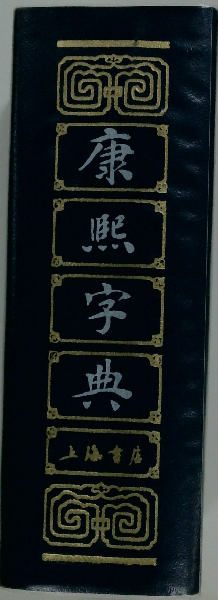 康熙字典
上海書店